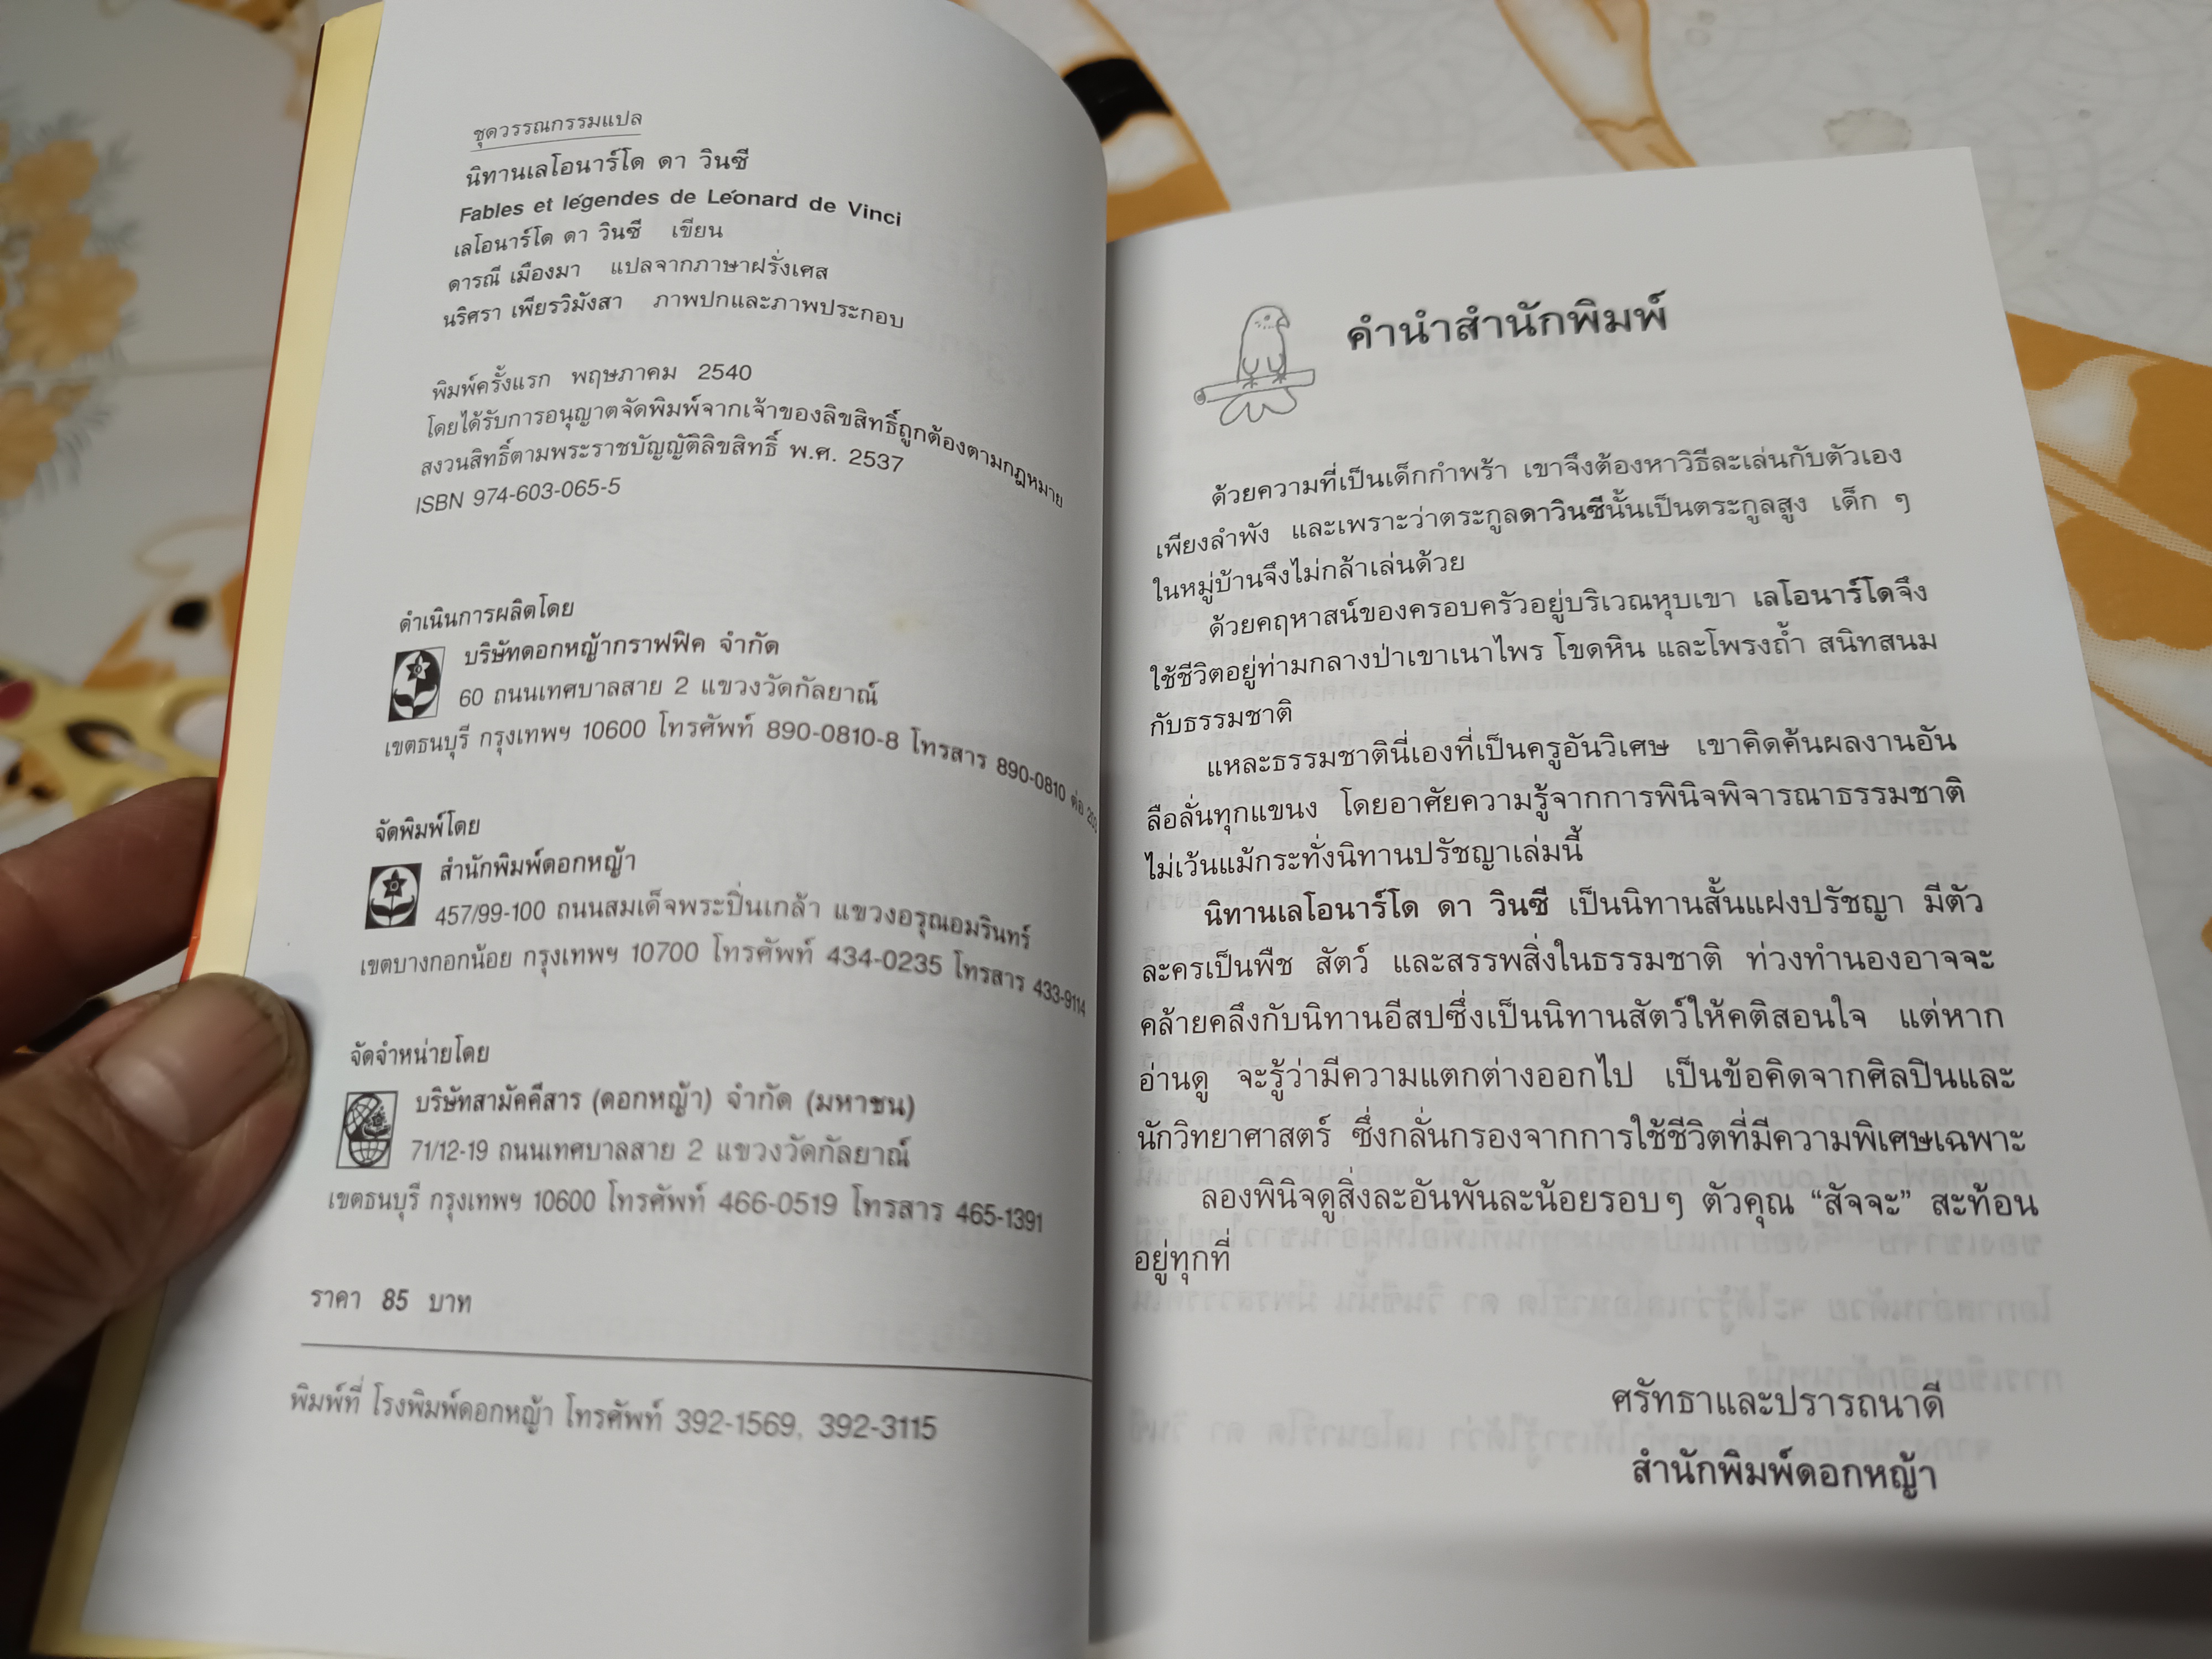 ชุดวรรณกรรมแปล
นิทานเลโอนาร์โด ดา วินซี
Fables et légendes de Léonard de Vinci
เลโอนาร์โด ดา วินซี เขียน
ดารณี เมืองมา แปลจากภาษาฝรั่งเศส
นริศรา เพียรวิมังสา ภาพปกและภาพประกอบ
พิมพ์ครั้งแรก พฤษภาคม 2540
โดยได้รับการอนุญาตจัดพิมพ์จากเจ้าของลิขสิทธิ์ถูกต้องตามกฎหมาย
สงวนสิทธิ์ตามพระราชบัญญัติลิขสิทธิ์ พ.ศ. 2537
ISBN 974-603-065-5
ดำเนินการผลิตโดย
บริษัทดอกหญ้ากราฟฟิค จำกัด
60 ถนนเทศบาลสาย 2 แขวงวัดกัลยาณ์
เขตธนบุรี กรุงเทพฯ 10600 โทรศัพท์ 890-0810-8 โทรสาร 890-0810 ต่อ
จัดพิมพ์โดย
สำนักพิมพ์ดอกหญ้า
457/99-100 ถนนสมเด็จพระปิ่นเกล้า แขวงอรุณอมรินทร์
เขตบางกอกน้อย กรุงเทพฯ 10700 โทรศัพท์ 434-0235 โทรสาร 433-9114
จัดจำหน่ายโดย
บริษัทสามัคคีสาร (ดอกหญ้า) จำกัด (มหาชน)
71/12-19 ถนนเทศบาลสาย 2 แขวงวัดกัลยาณ์
เขตธนบุรี กรุงเทพฯ 10600 โทรศัพท์ 466-0519 โทรสาร 465-1391
ราคา 85 บาท
พิมพ์ที่ โรงพิมพ์ดอกหญ้า โทรศัพท์ 392-1569, 392-3115
คำนำสำนักพิมพ์
ด้วยความที่เป็นเด็กกำพร้า เขาจึงต้องหาวิธีละเล่นกับตัวเอง
เพียงลำพัง และเพราะว่าตระกูลดาวินซีนั้นเป็นตระกูลสูง เด็ก ๆ
ในหมู่บ้านจึงไม่กล้าเล่นด้วย
ด้วยคฤหาสน์ของครอบครัวอยู่บริเวณหุบเขา เลโอนาร์โดจึง
ใช้ชีวิตอยู่ท่ามกลางป่าเขาเนาไพร โขดหิน และโพรงถ้ำ สนิทสนม
กับธรรมชาติ
แหละธรรมชาตินี่เองที่เป็นครูอันวิเศษ เขาคิดค้นผลงานอัน
ลือลั่นทุกแขนง โดยอาศัยความรู้จากการพินิจพิจารณาธรรมชาติ
ไม่เว้นแม้กระทั่งนิทานปรัชญาเล่มนี้
นิทานเลโอนาร์โด ดา วินซี เป็นนิทานสั้นแฝงปรัชญา มีตัว
ละครเป็นพืช สัตว์ และสรรพสิ่งในธรรมชาติ ท่วงทำนองอาจจะ
คล้ายคลึงกับนิทานอีสปซึ่งเป็นนิทานสัตว์ให้คติสอนใจ แต่หาก
อ่านดู จะรู้ว่ามีความแตกต่างออกไป เป็นข้อคิดจากศิลปินและ
นักวิทยาศาสตร์ ซึ่งกลั่นกรองจากการใช้ชีวิตที่มีความพิเศษเฉพาะ
ลองพินิจดูสิ่งละอันพันละน้อยรอบๆ ตัวคุณ “สัจจะ” สะท้อน
อยู่ทุกที่
ศรัทธาและปรารถนาดี
สำนักพิมพ์ดอกหญ้า